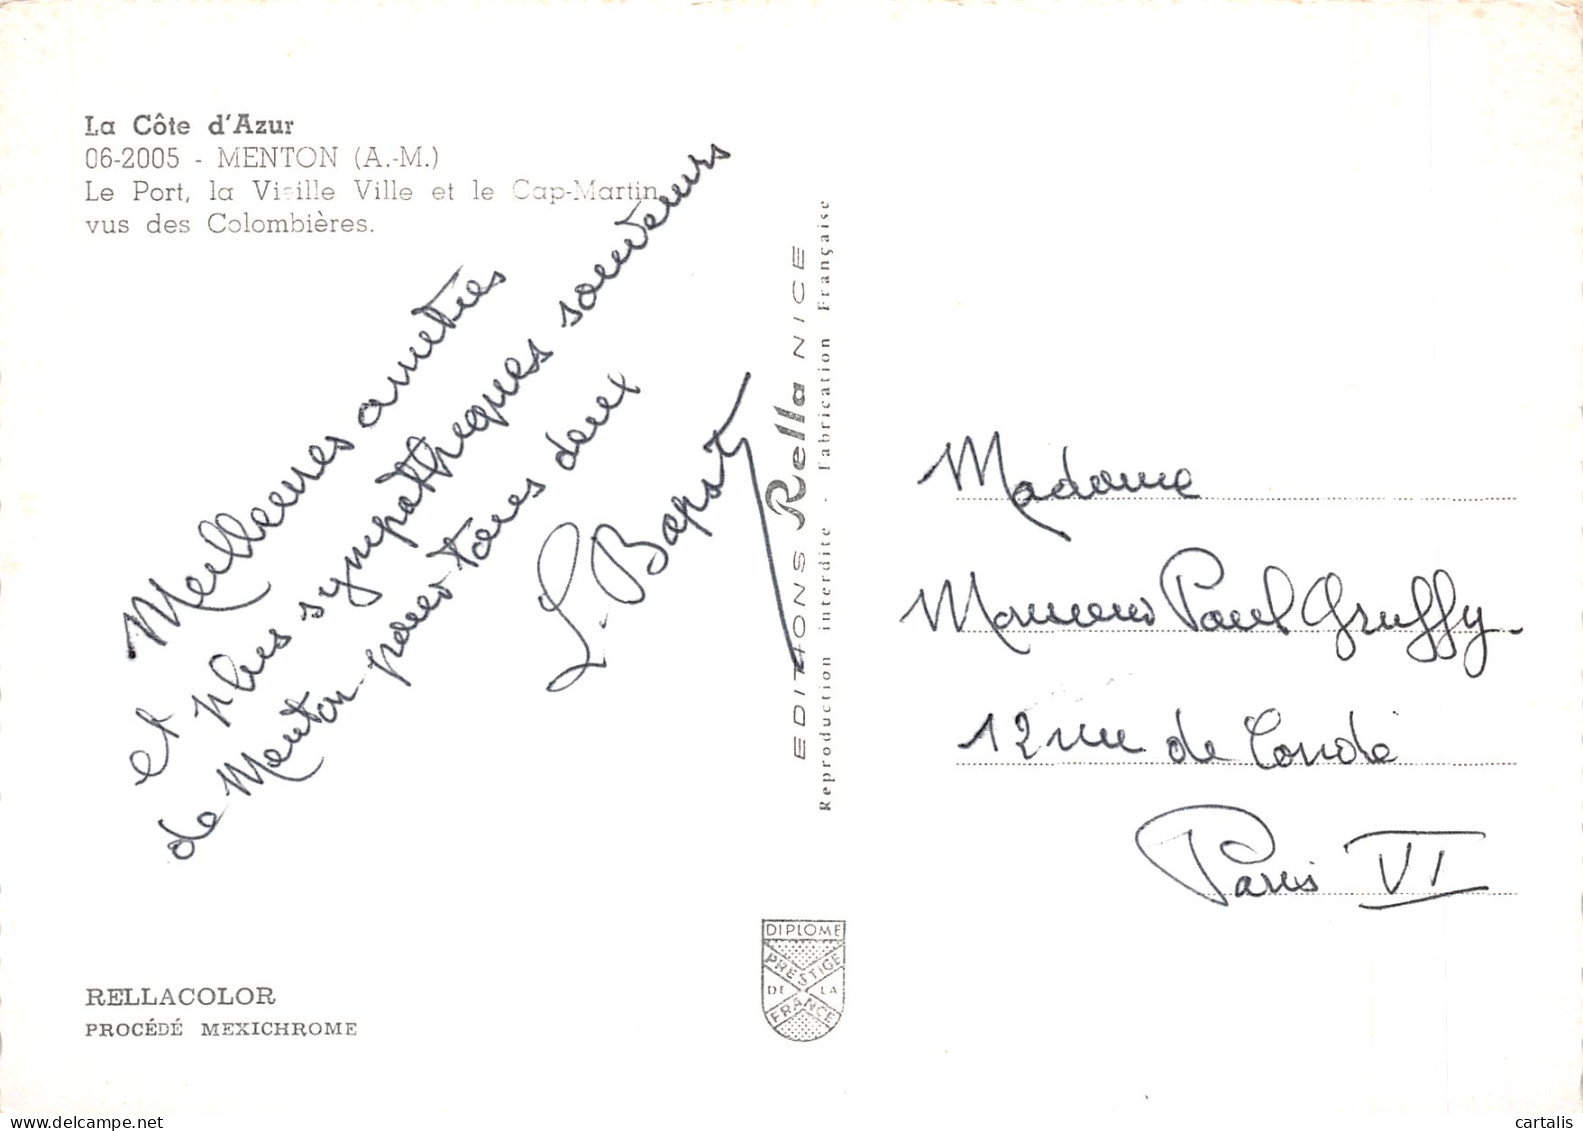 La Côte d'Azur
06-2005 - MENTON (A.-M.)
Le Port, la Vieille Ville et le Cap-Martin
vus des Colombières.
Meilleures amitiés
et plus sympathiques souvenirs
de Menton pour tous deux
L. Bapst
EDITIONS Rella NICE
Reproduction interdite - Fabrication Française
Madame
Monsieur Paul Gruffy.
12 rue de Condé
Paris VI
DIPLOME
PRESTIGE
DE LA
FRANCE
RELLACOLOR
PROCÉDÉ MEXICHROME
delcampe.net
cartalis